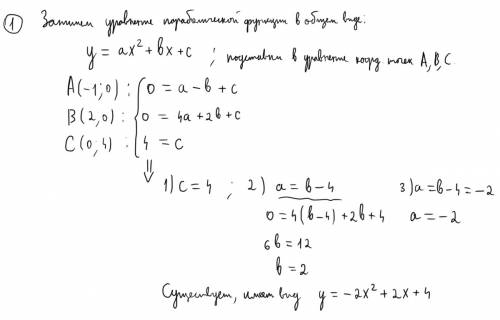 ① Запишем уравнение параболической функции в общем виде:
y = ax² + bx + c ; подставим в уравнение коорд точек A, B, C.
A(-1;0) : { 0 = a - b + c
B(2,0) : { 0 = 4a + 2b + c
C(0,4) : { 4 = c
⇓
1) c = 4 ; 2) a = b - 4 3) a = b - 4 = -2
0 = 4(b-4) + 2b + 4 a = -2
6b = 12
b = 2
Существует, имеет вид y = -2x² + 2x + 4